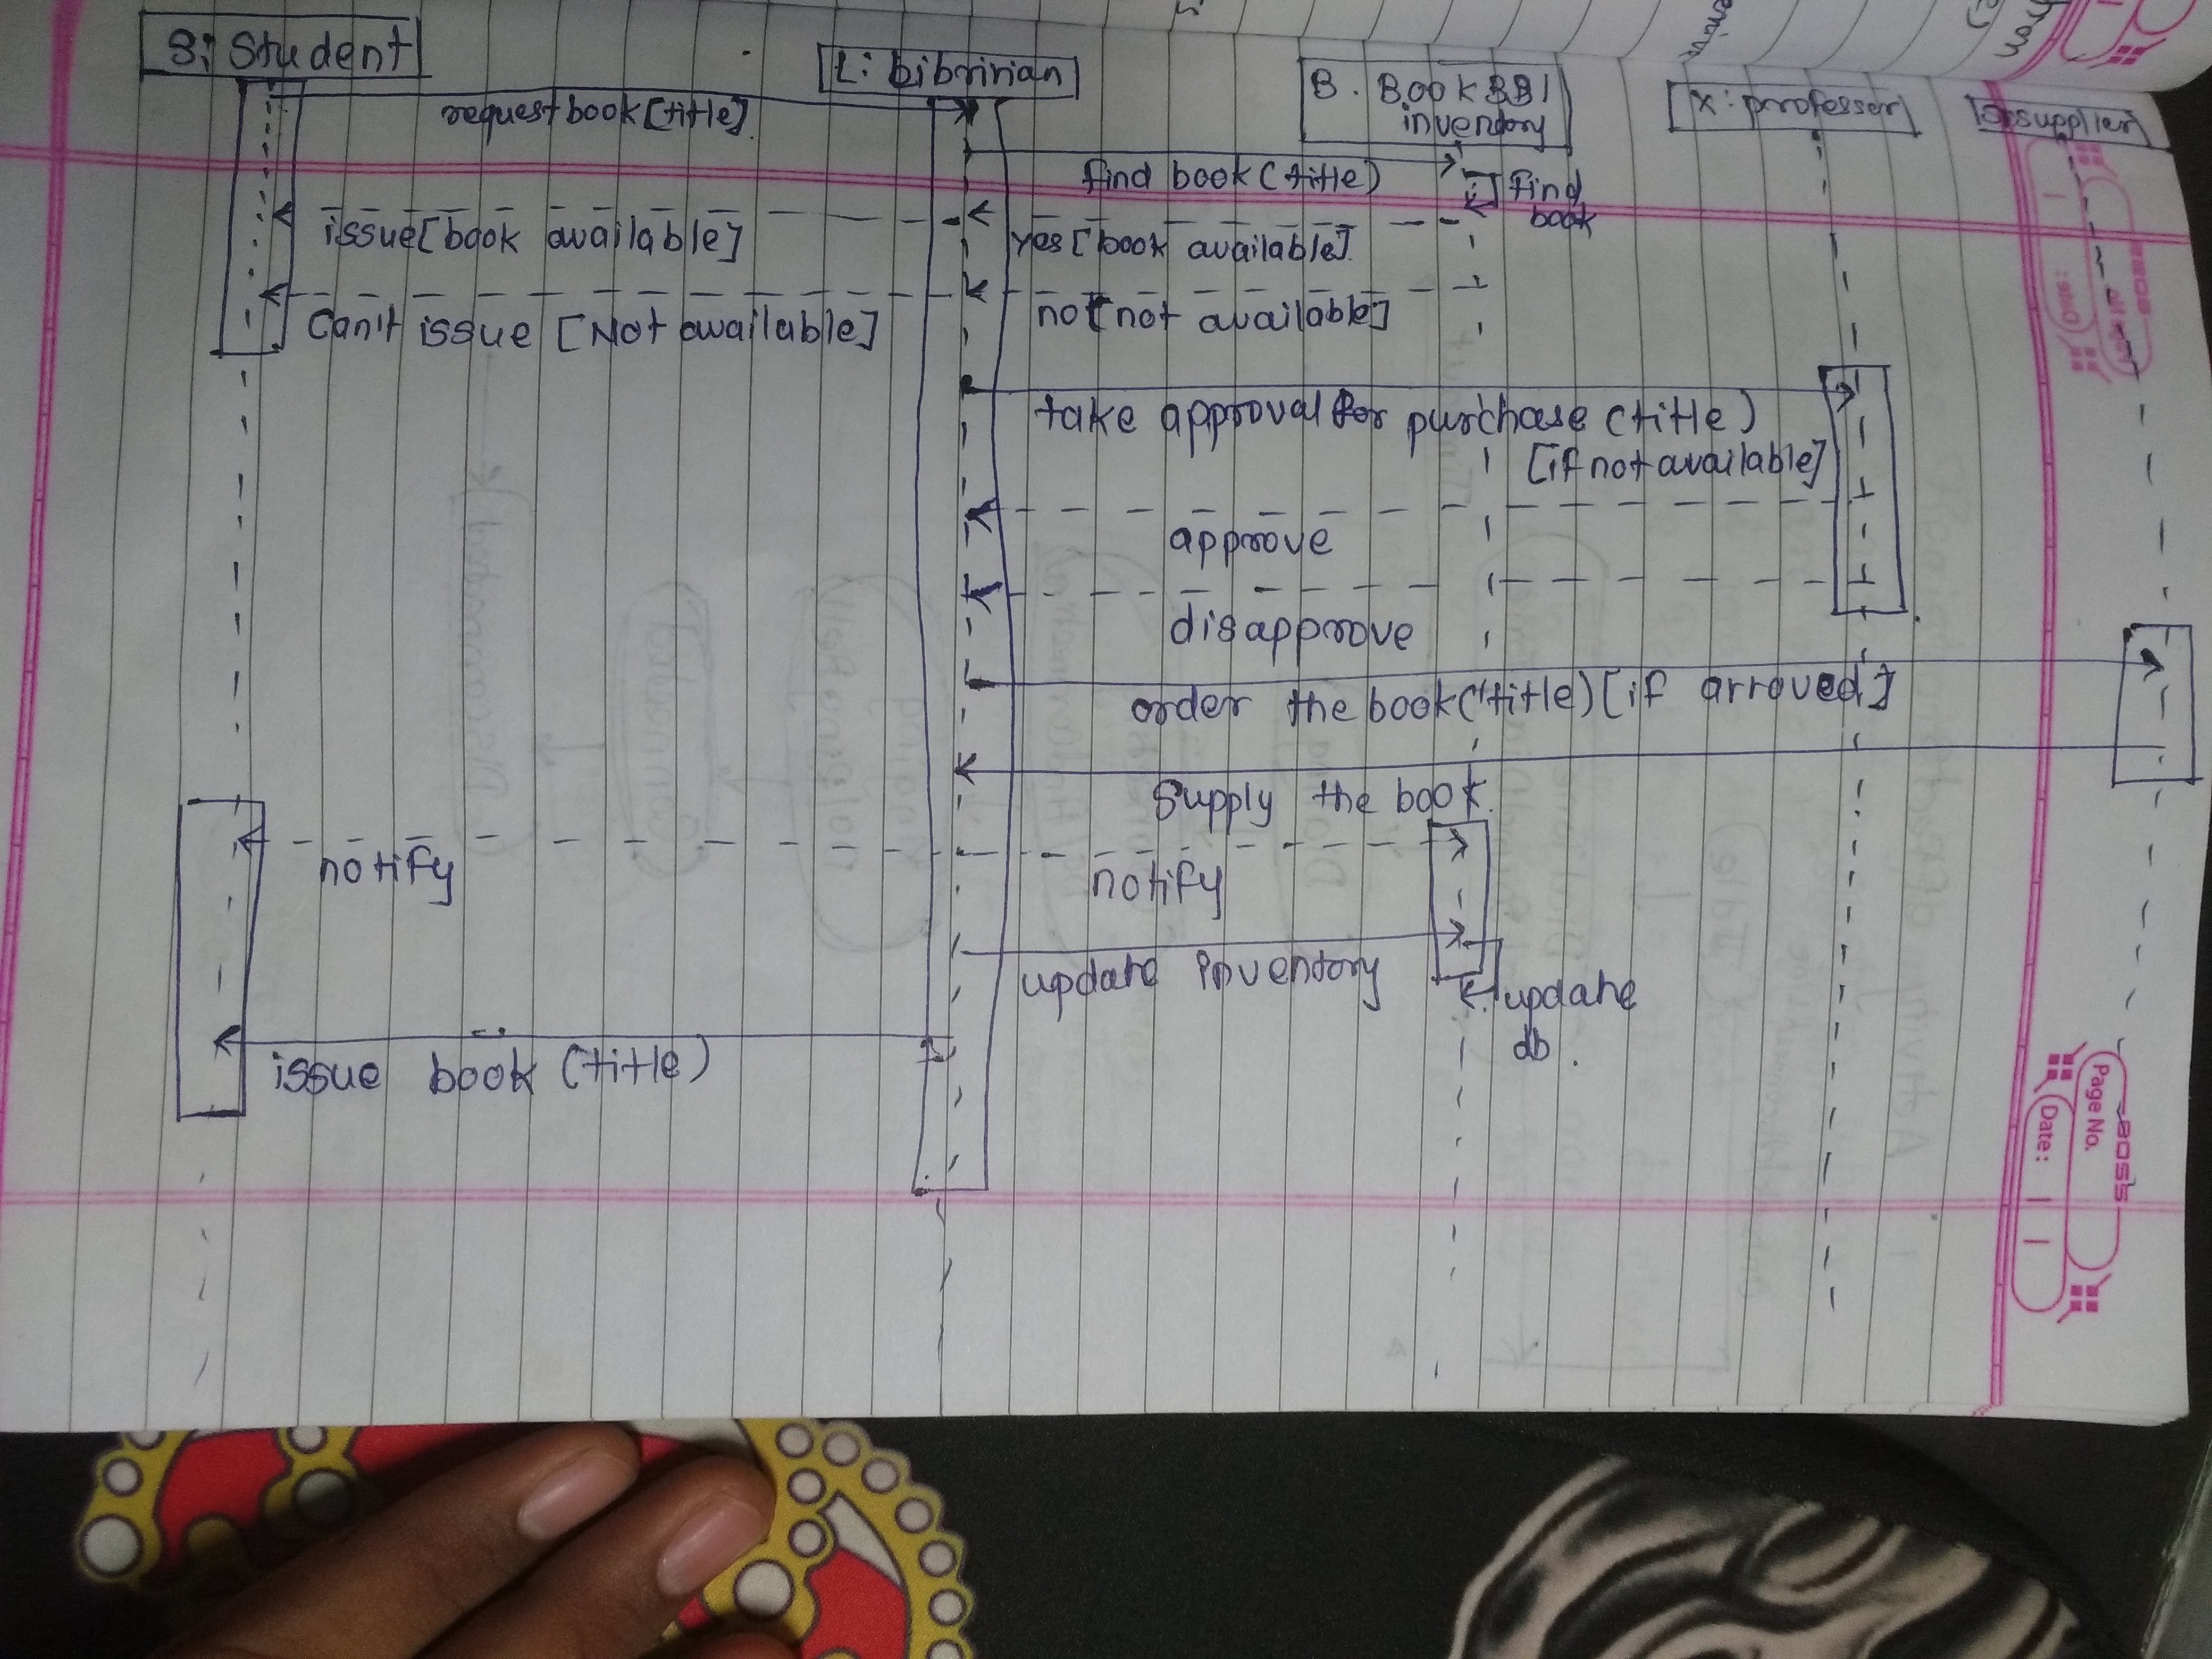 S: Student
L: Libririan
B. Book
inventory
X: professer
S: supplier
request book [title]
find book (title)
find
book
issue [book available]
yes [book available]
can't issue [Not available]
no [not available]
take approval for purchase (title)
[if not available]
approve
disapprove
order the book (title) [if arroved]
Supply the book.
notify
notify
update inventory
update
db.
issue book (title)
Page No.
Date: